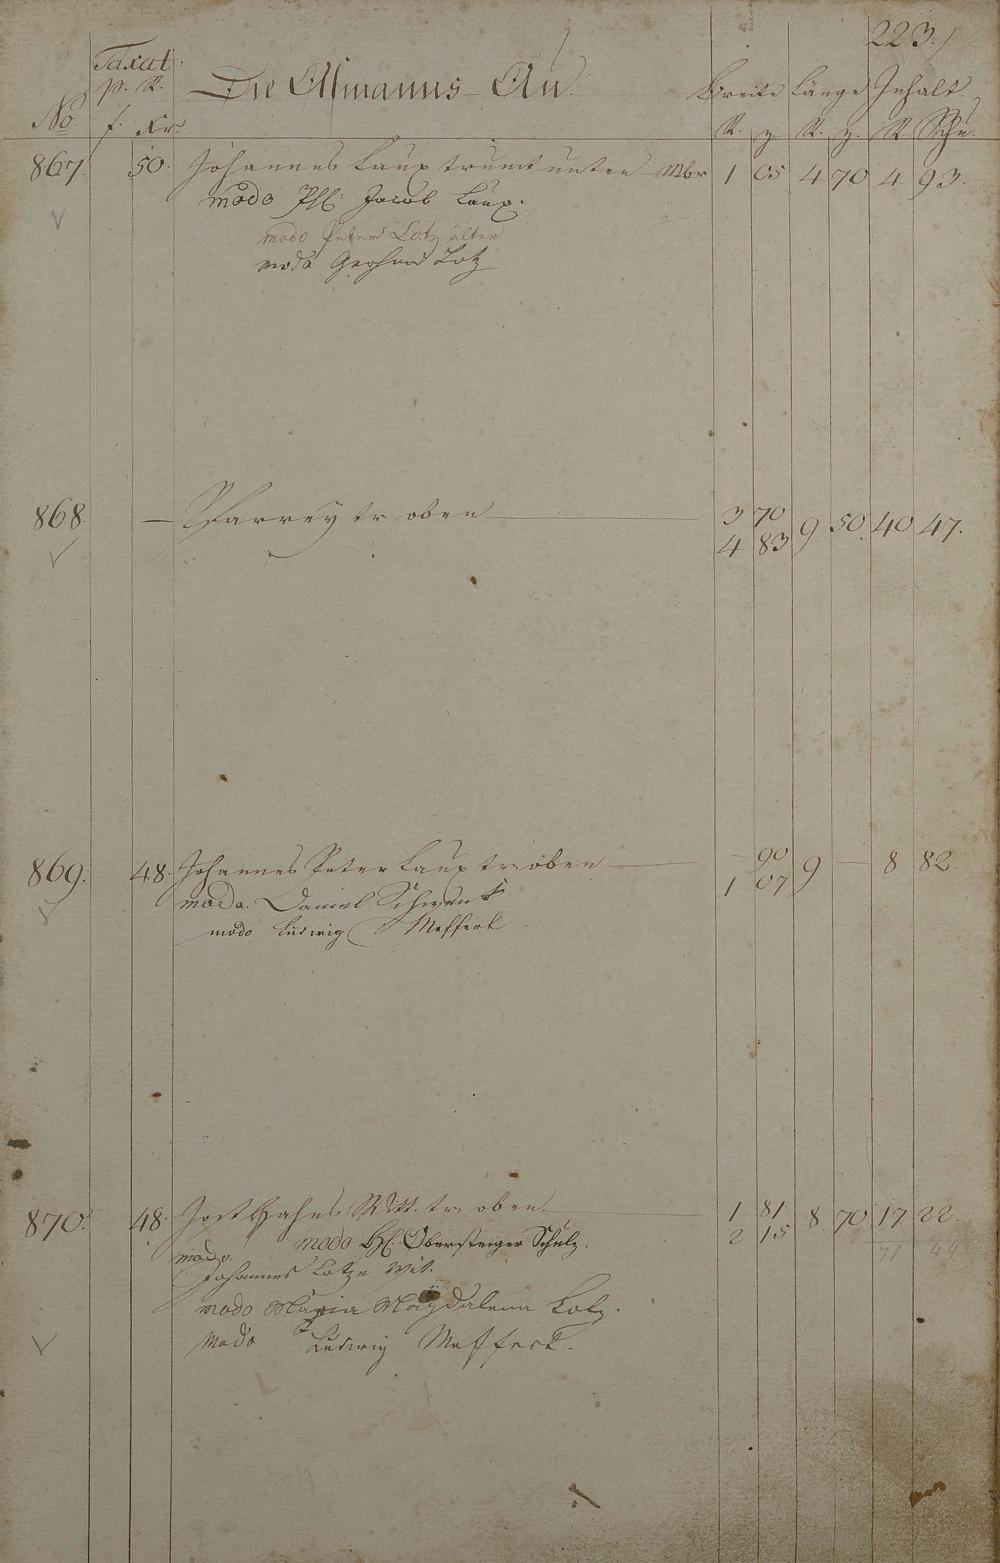 223.
Taxat:
p. R. Die Asmanns-Au. Breite Länge Inhalt
No f. Kr. R. z. R. z. R Schu.
867. 50. Johannes Laux trumt unten Mbr 1 05 4 70 4 93.
modo Pfl: Jacob Laux.
modo Peter Lotz älter
modo Gerhard Lotz
868. — Pfarrey tr oben 3 70 9 50. 40 47.
4 83
869. 48. Johannes Peter Laux tr. oben — 90 9 — 8 82.
1 07
modo. Daniel Schwenk
modo Ludwig Meffert
870. 48. Jost Hahns Witt. tr. oben 1 81 8 70 17 22.
2 15
71 44
modo H. Obersteiger Schulz.
modo
Johannes Lotze Wit.
modo Maria Magdalena Lotz.
modo Ludwig Meffert.